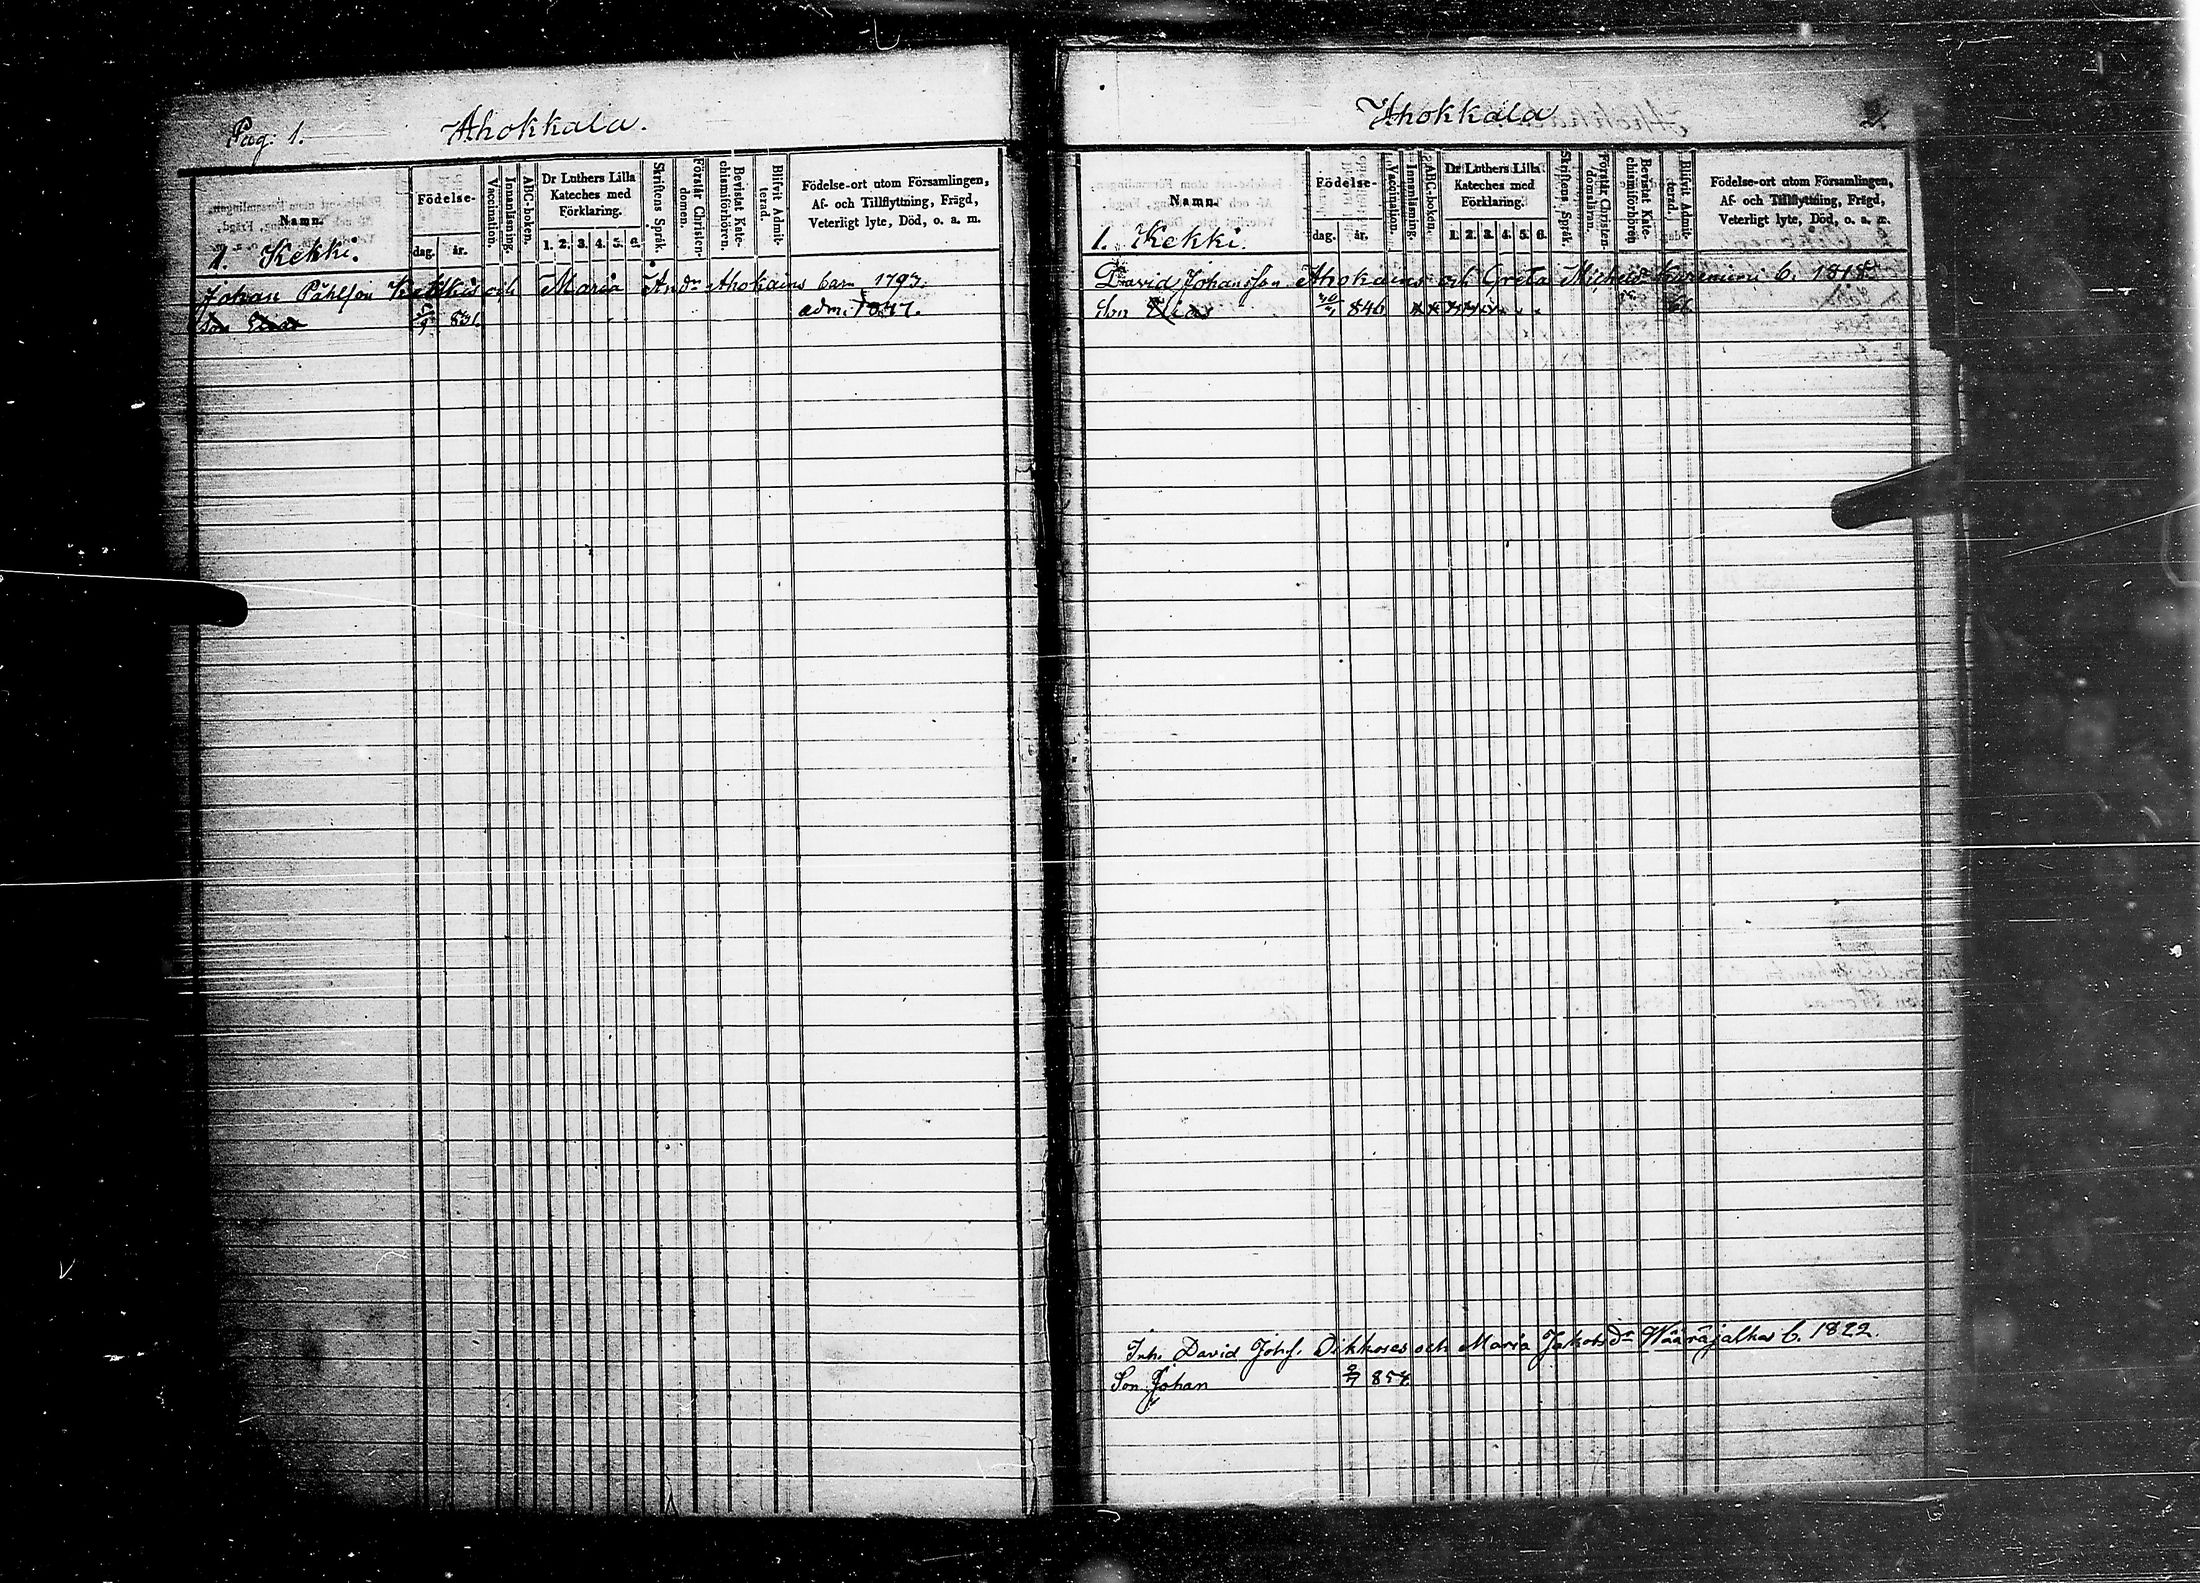 Pag: 1. Ahokkala.
Namn.
Födelse-
dag. år.
Vaccination.
Innanläsning.
ABC-boken.
Dr Luthers Lilla
Kateches med
Förklaring.
1. 2. 3. 4. 5. 6.
Skriftens Språk.
Förstår Christen-
domen.
Bevistat Kate-
chismiförhören.
Blifvit Admit-
terad.
Födelse-ort utom Församlingen,
Af- och Tillflyttning, Frägd,
Veterligt lyte, Död, o. a. m.
1. Kekki.
Johan Påhlsson Kekkis och Maria And:dr Ahokains barn 1793.
Son 831. adm. 1847.
Ahokkala 2.
Namn.
Födelse-
dag. år.
Vaccination.
Innanläsning.
ABC-boken.
Dr Luthers Lilla
Kateches med
Förklaring.
1. 2. 3. 4. 5. 6.
Skriftens Språk.
Förstår Christen-
domsläran.
Bevistat Kate-
chismiförhören
Blifvit Admit-
terad.
Födelse-ort utom Församlingen,
Af- och Tillflyttning, Frägd,
Veterligt lyte, Död, o. a. m.
1. Kekki.
David Johansson Ahokains och Greta Michelsdr b. 1818.
Son Elias 846
Inh. David Johs. Oikkoses och Maria Jakobsdr Wääräjalkas b. 1822.
Son Johan 2/7 854